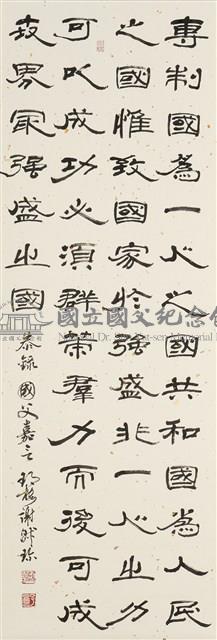 專制國為一人之國共和國為人民
之國惟致國家於强盛非一人之力
可以成功必須群策羣力而後可成
世界最强盛之國
恭錄國父嘉言
國立國父紀念館